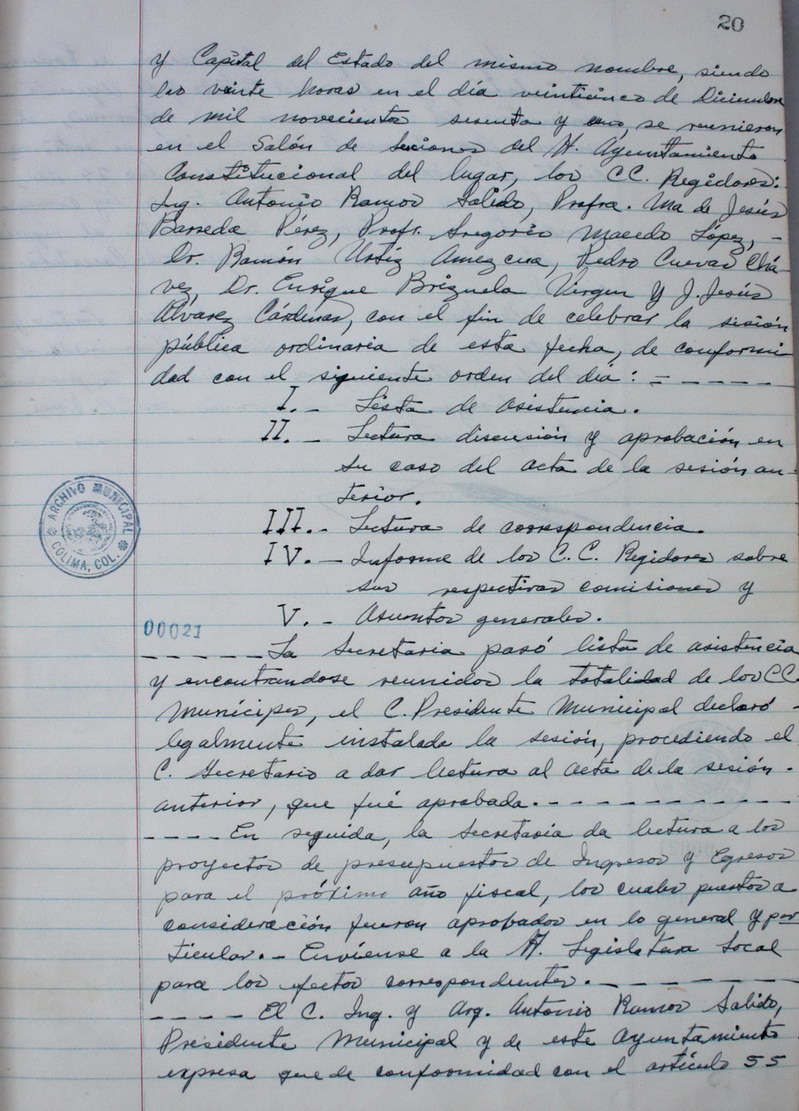 20
y Capital del Estado del mismo nombre, siendo
las veinte horas en el día veinticinco de Diciembre
de mil novecientos sesenta y uno, se reunieron
en el Salón de Sesiones del H. Ayuntamiento
Constitucional del lugar, los CC. Regidores:
Ing. Antonio Ramos Salido, Profra. Ma de Jesús
Barreda Pérez, Profr. Gregorio Macedo López, -
Dr. Ramón Ortiz Amezcua, Pedro Cuevas Chá-
vez, Dr. Enrique Brizuela Virgen y J. Jesús
Alvarez Cárdenas, con el fin de celebrar la sesión
pública ordinaria de esta fecha, de conformi
dad con el siguiente orden del día: - - - - - -
I.- Lista de asistencia.
II.- Lectura discusión y aprobación en
su caso del acta de la sesión an-
terior.
III.- Lectura de correspondencia.
IV.- Informe de los C.C. Regidores sobre
sus respectivas comisiones y
V.- Asuntos generales.
ARCHIVO MUNICIPAL
COLIMA, COL.
00021
- - - - - La Secretaria pasó lista de asistencia
y encontrandose reunidos la totalidad de los CC.
Munícipes, el C. Presidente Municipal declaró -
legalmente instalada la sesión, procediendo el
C. Secretario a dar lectura al acta de la sesión -
anterior, que fué aprobada. - - - - - - - - - - -
- - - - En seguida, la Secretaria da lectura a los
proyectos de presupuestos de Ingresos y Egresos
para el próximo año fiscal, los cuales puestos a
consideración fueron aprobados en lo general y par
ticular.- Envíense a la H. Legislatura Local
para los efectos correspondientes. - - - - - - - - -
- - - - - El C. Ing. y Arq. Antonio Ramos Salido,
Presidente Municipal y de este Ayuntamiento
expresa que de conformidad con el artículo 55